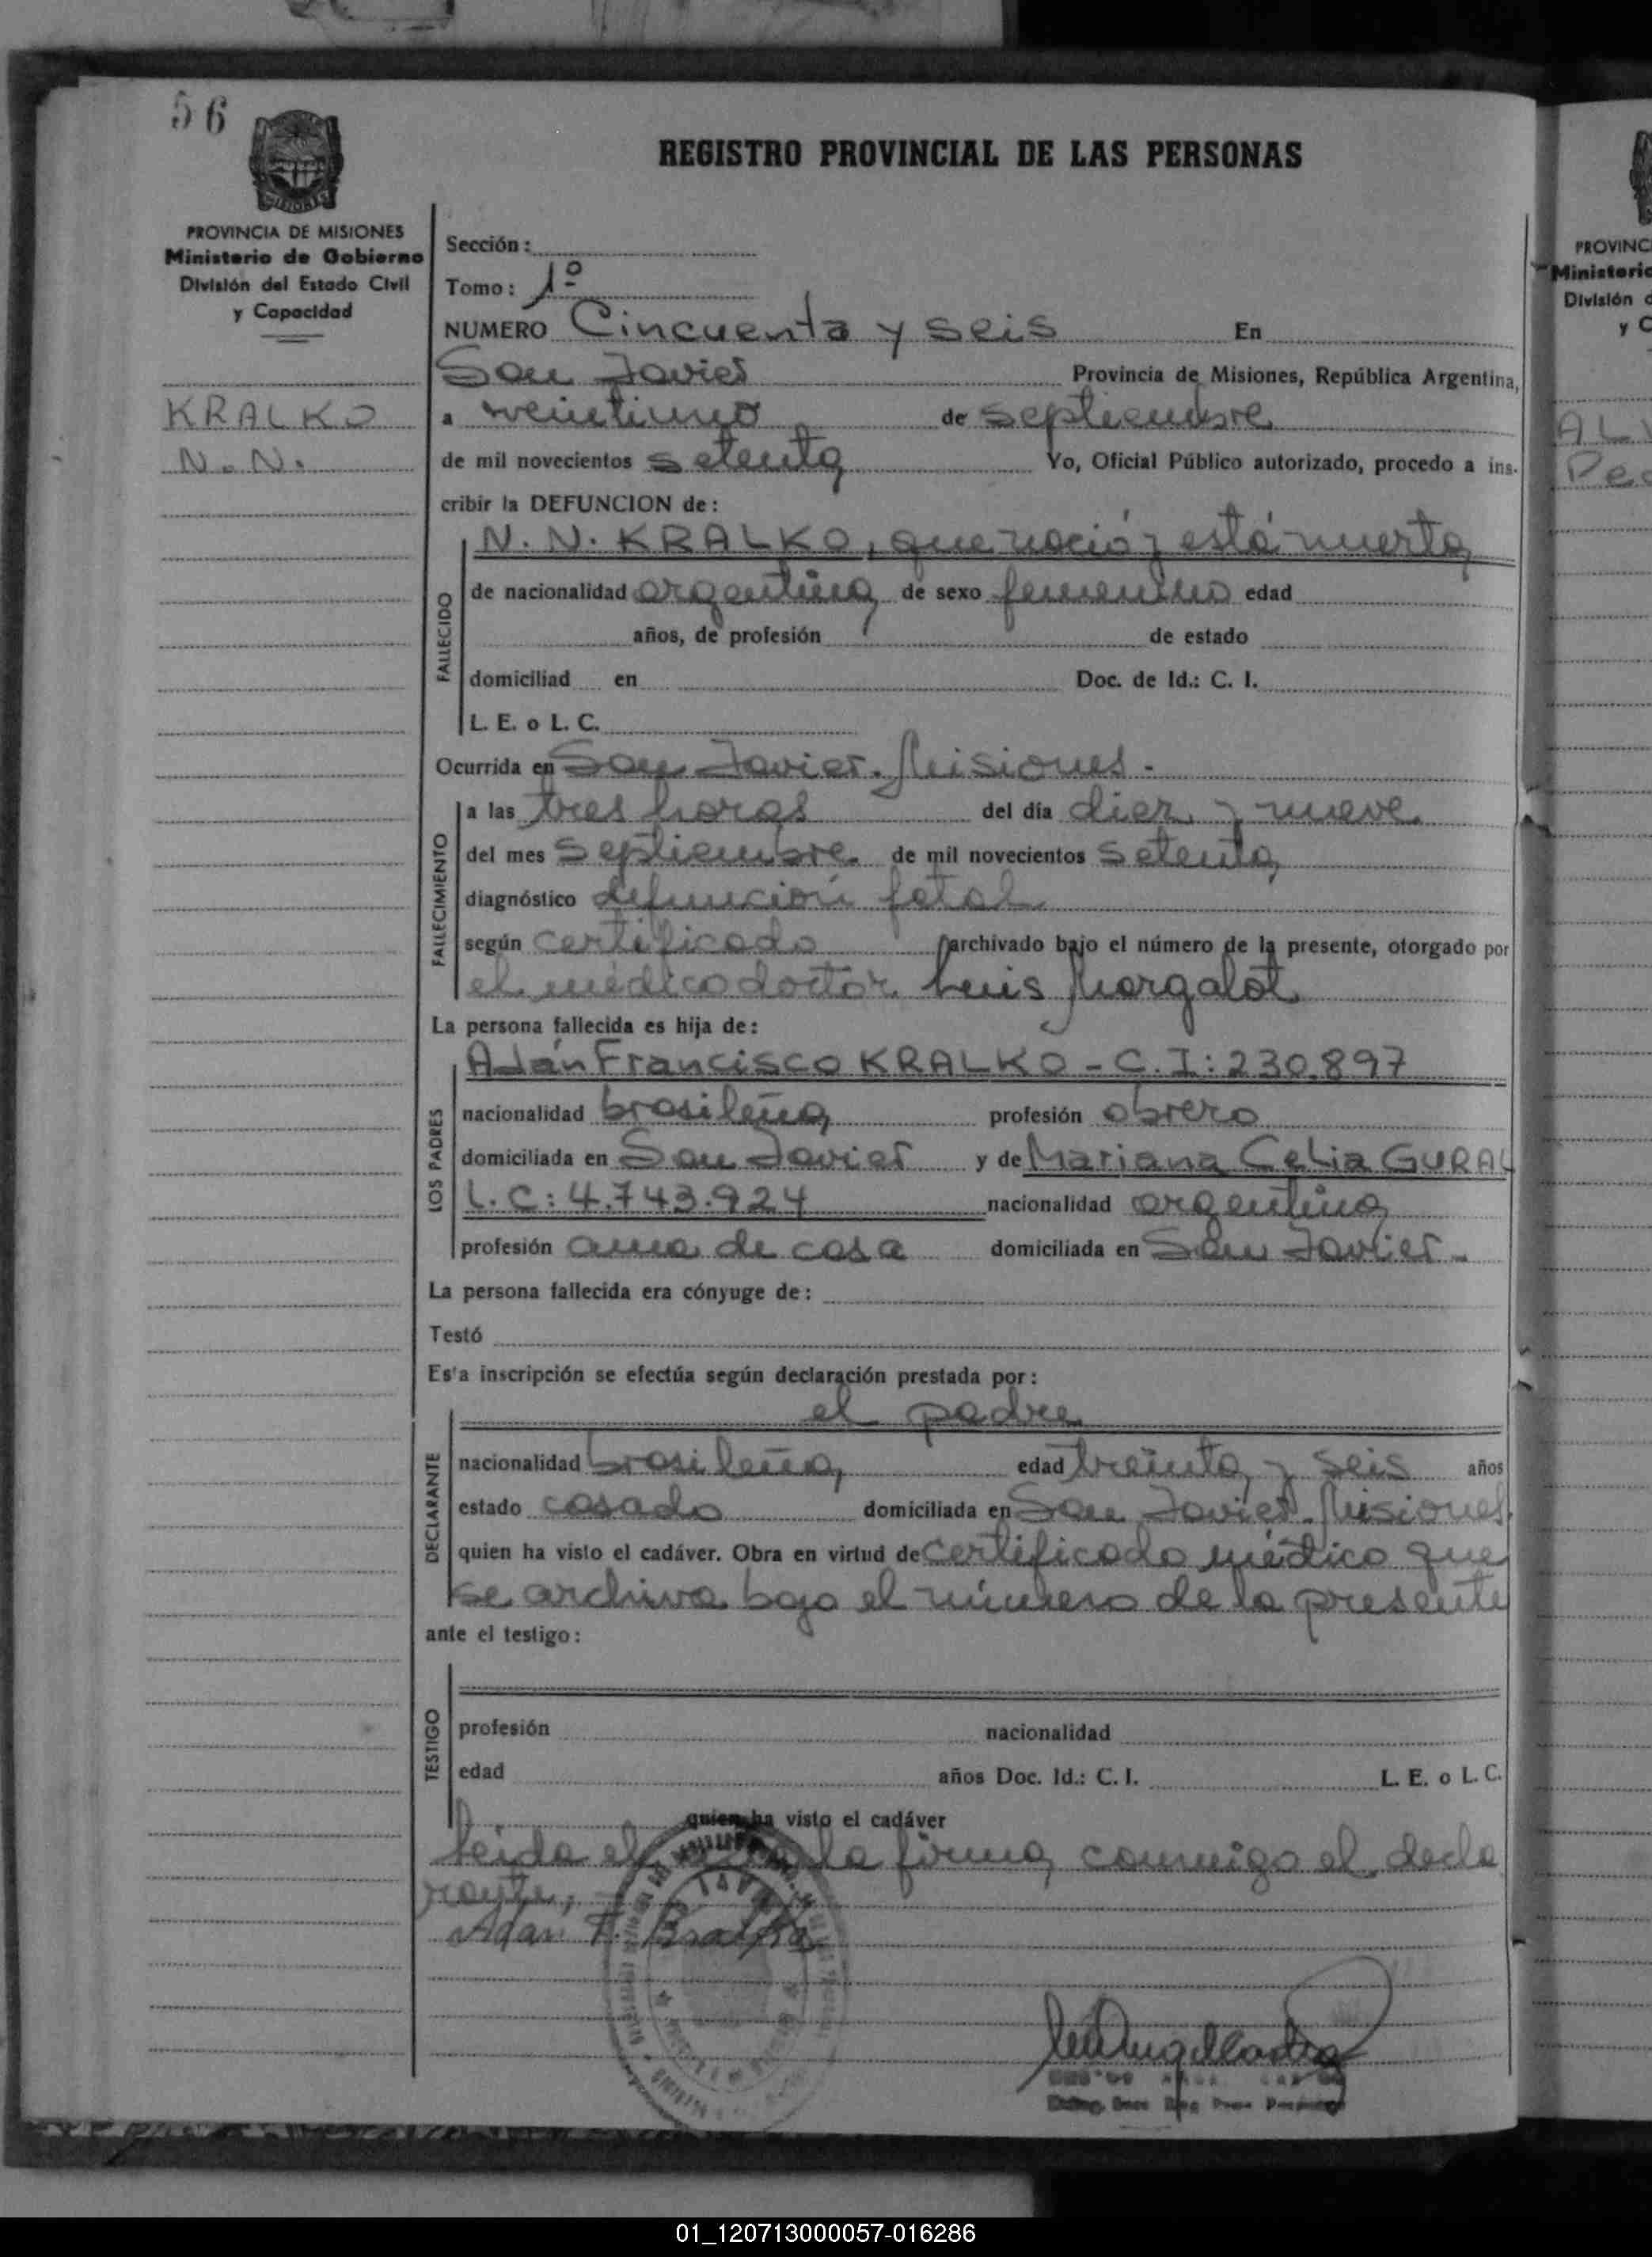 56
REGISTRO PROVINCIAL DE LAS PERSONAS
PROVINCIA DE MISIONES
Ministerio de Gobierno
División del Estado Civil
y Capacidad
KRALKO
N. N.
Sección:
Tomo: 1º
NUMERO Cincuenta y seis En
San Javier Provincia de Misiones, República Argentina,
a veintiuno de septiembre
de mil novecientos setenta Yo, Oficial Público autorizado, procedo a ins-
cribir la DEFUNCION de:
N. N. KRALKO, que nació y está muerta
FALLECIDO
de nacionalidad argentina de sexo femenino edad
años, de profesión de estado
domiciliad en Doc. de Id.: C. I.
L. E. o L. C.
Ocurrida en San Javier. Misiones.-
FALLECIMIENTO
a las tres horas del día diez y nueve
del mes septiembre de mil novecientos setenta
diagnóstico defunción fetal
según certificado archivado bajo el número de la presente, otorgado por
el médico doctor Luis Morgalot
La persona fallecida es hija de:
LOS PADRES
Adán Francisco KRALKO - C. I: 230.897
nacionalidad brasileña profesión obrero
domiciliada en San Javier y de Mariana Celia GURAL
L. C: 4.743.924 nacionalidad argentina
profesión ama de casa domiciliada en San Javier.-
La persona fallecida era cónyuge de:
Testó
Es'a inscripción se efectúa según declaración prestada por:
DECLARANTE
el padre
nacionalidad brasileña edad treinta y seis años
estado casado domiciliada en San Javier. Misiones
quien ha visto el cadáver. Obra en virtud de certificado médico que
se archiva bajo el número de la presente
ante el testigo:
TESTIGO
profesión nacionalidad
edad años Doc. Id.: C. I. L. E. o L. C.
quien ha visto el cadáver
Leida el la firma conmigo el decla
rante;
Adan F. Kralko
PROVINC
Ministerio
División d
y C
AL
Ped
01_120713000057-016286